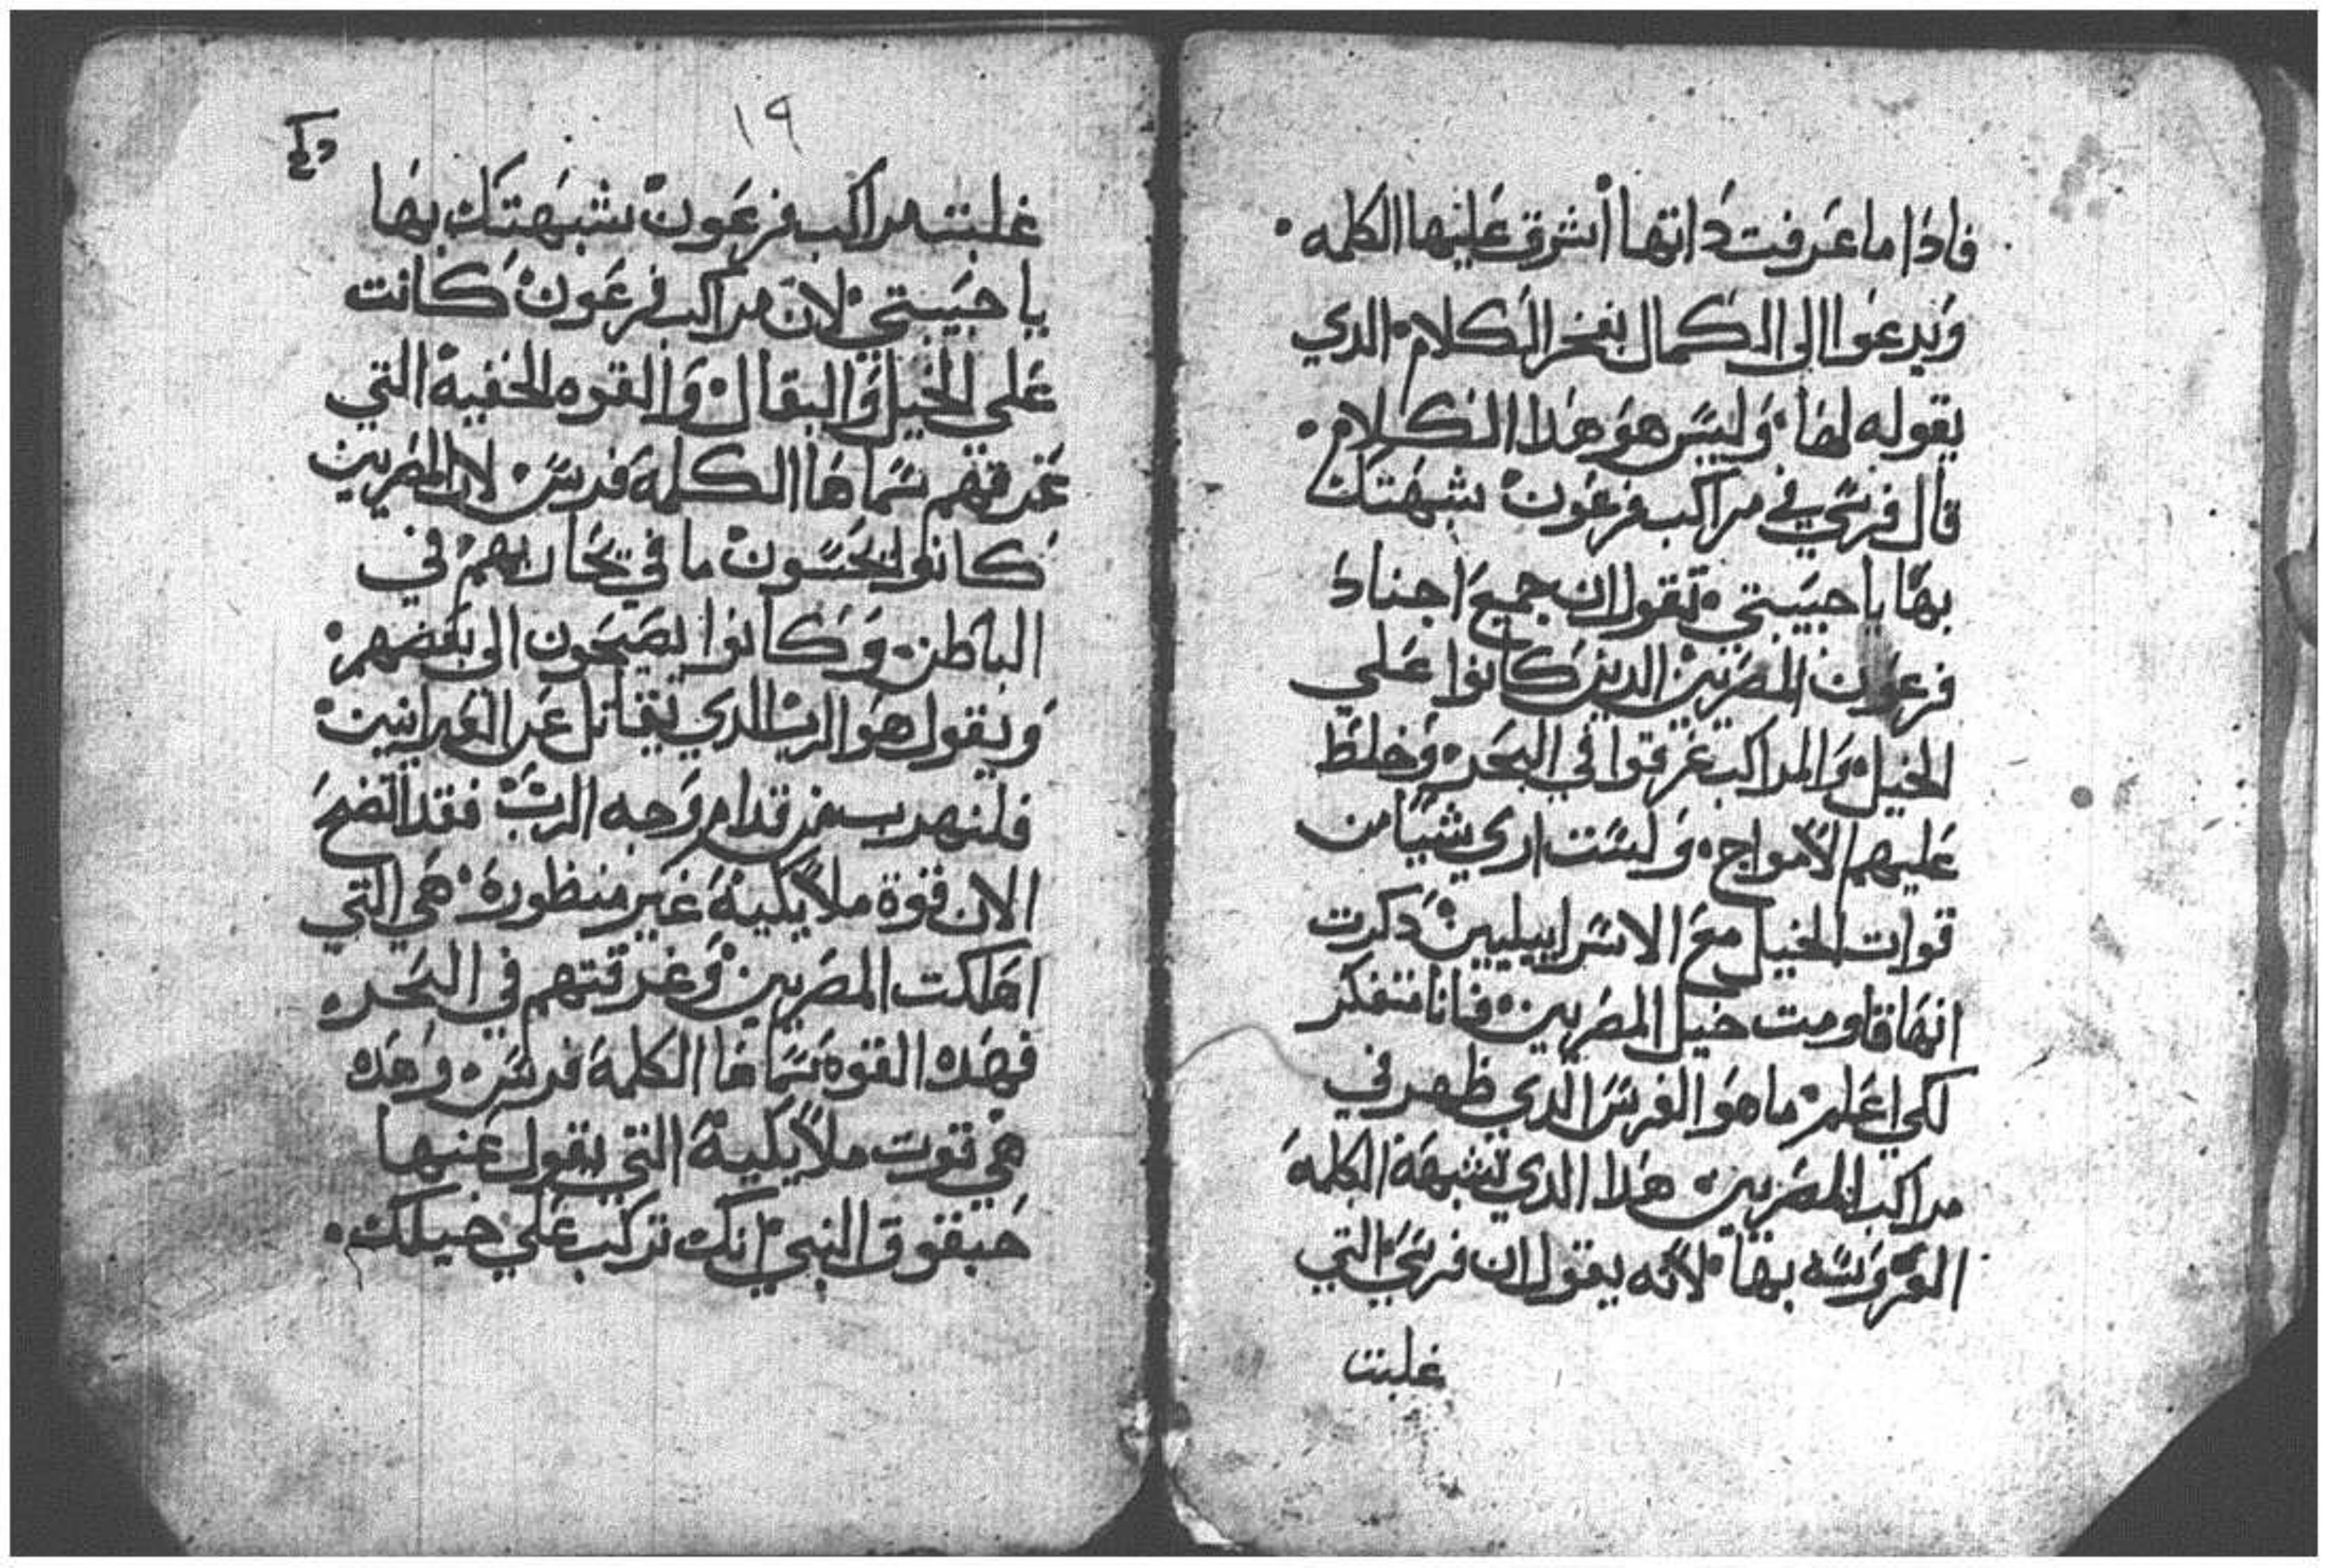 فادا ما عرفت داتها أشرق عليها الكلمه٠
ويدعوا الى الكمال بفخر الكلام٠ الدي
يقوله لها٠ وليس هو هدا الكلام٠
قال فرسي في مراكب فرعون شبهتك
بها يا حبيبتي٠ تقول ان جميع اجناد
فرعون المصريين الدين كانوا علي
الخيل والمراكب غرقوا في البحر٠ وخلط
عليهم الأمواج٠ ولست اري شيًا من
قوات الخيل مع الاسراييليين دكرت
انها قاومت خيل المصريين٠ فانا نتفكر
لكي اعلم٠ ما هو الفرس الدي ظهر في
مراكب المصريين هدا الدي تشبهة الكلمة
العروسه بها٠ لأنه يقول ان فرسي التي
غلبت
١٩
غلبت مراكب فرعون شبهتك بها
يا حبيبتي٠ لان مراكب فرعون كانت
على الخيل والبقال٠ والقوه الخفية التي
غرقتهم سماها الكلمة فرس٠ لان المصريين
كانوا يحسون ما في يحاربهم في
الباطن٠ وكانوا يصيحون الى بعضهم٠
ويقول هو الرب الدي يقاتل عن العبرانيين٠
فلنهرب من قدام وجه الرب٠ فقد اتضح
الان قوة ملاًيكية غير منظورة٠ هي التي
اهلكت المصريين٠ وغرقتهم في البحر٠
فهده القوة سماها الكلمة فرس٠ وهده
هي قوت ملاًيكية التي يقول عنها
حبقوق النبي٠ انك تركب علي خيلك٠